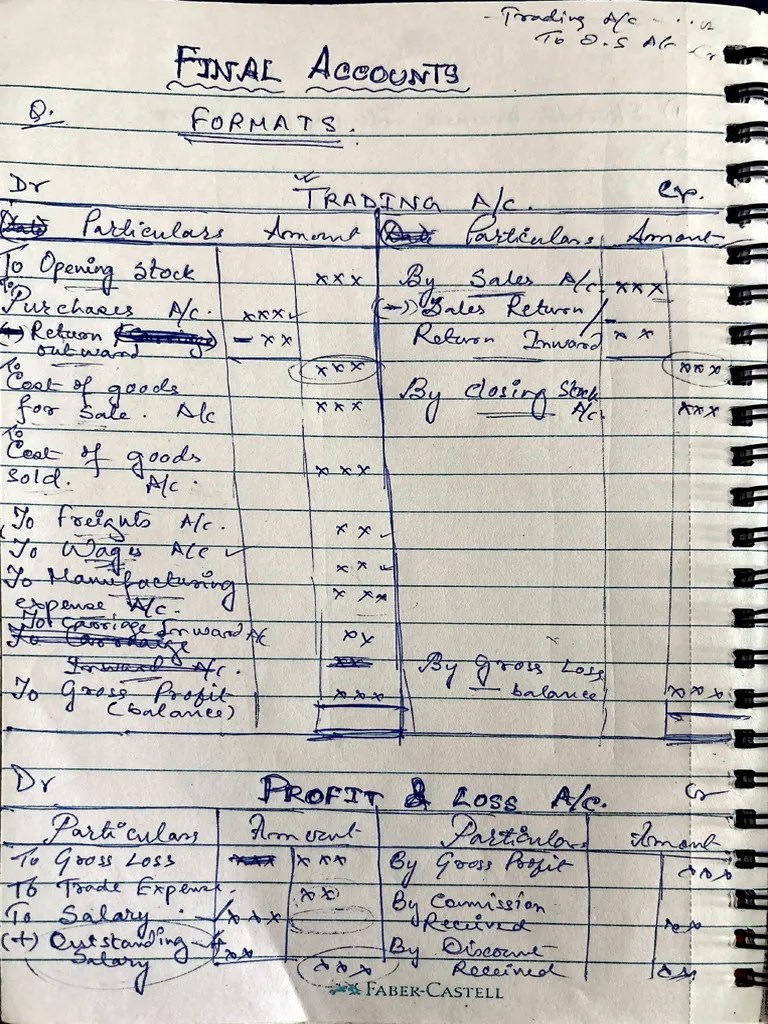 - Trading A/c
To O.S A/c
FINAL ACCOUNTS
Q. FORMATS.
Dr TRADING A/c. Cr.
Particulars Amount Particulars Amount
To Opening Stock xxx By Sales A/c xxx
To Purchases A/c. xxx (-) Sales Return /
(-) Return - xx Return Inward xx
outward
xxx xxx
To Cost of goods By Closing Stock
for Sale. A/c xxx A/c. xxx
To
Cost of goods
Sold. A/c. xxx
To Freights A/c. xx
To Wages A/c xx
To Manufacturing xxx
expense A/c.
To Carriage Inward A/c xx
By Gross Loss
To Gross Profit xxx balance xxx
(balance)
Dr PROFIT & LOSS A/c. Cr
Particulars Amount Particulars Amount
To Gross Loss xxx By Gross Profit xxx
To Trade Expense. xx By Commission
To Salary. xxx Received xx
(+) Outstanding By Discount
Salary xx xxx Received xx
FABER-CASTELL